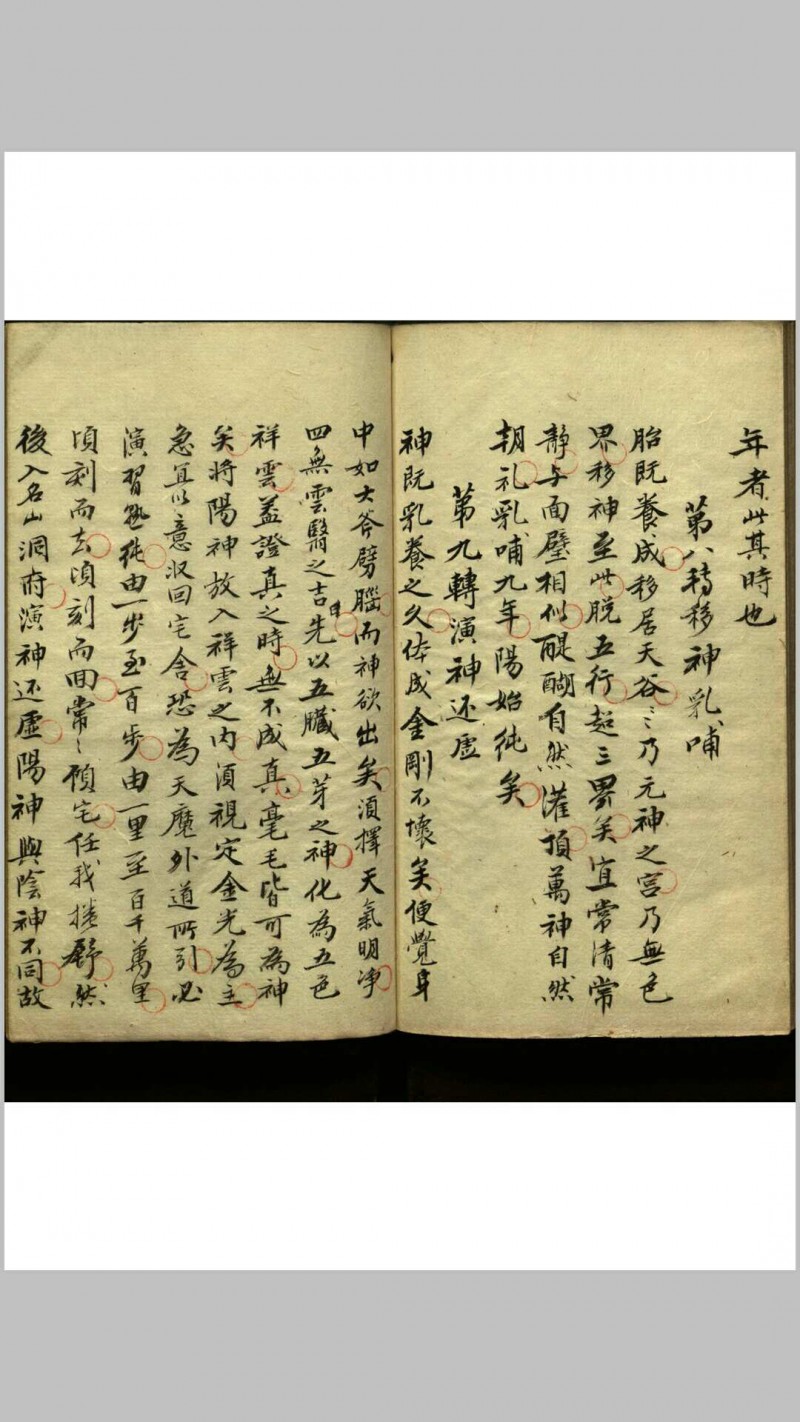 年者此其時也
第八轉移神乳哺
胎既養成移居天谷〻乃元神之宮乃無色
界移神至此脱五行超三界矣宜常清常
靜与面壁相似醍醐自然灌頂萬神自然
朝礼乳哺九年陽始純矣
第九轉演神还虚
神既乳養之久体成金剛不壞矣便覺身
中如大斧劈腦而神欲出矣須擇天氣明净
四無雲翳之吉日先以五臟五芽之神化為五色
祥雲盖證真之時無不成真毫毛皆可為神
矣將陽神放入祥雲之内須視定金光為主
急宜以意収回宅舍恐為天魔外道所引必
演習熟純由一步至百步由一里至百千萬里
頃刻而去頃刻而回常〻顧宅任我捲舒然
後入名山洞府演神还虚陽神與陰神不同故